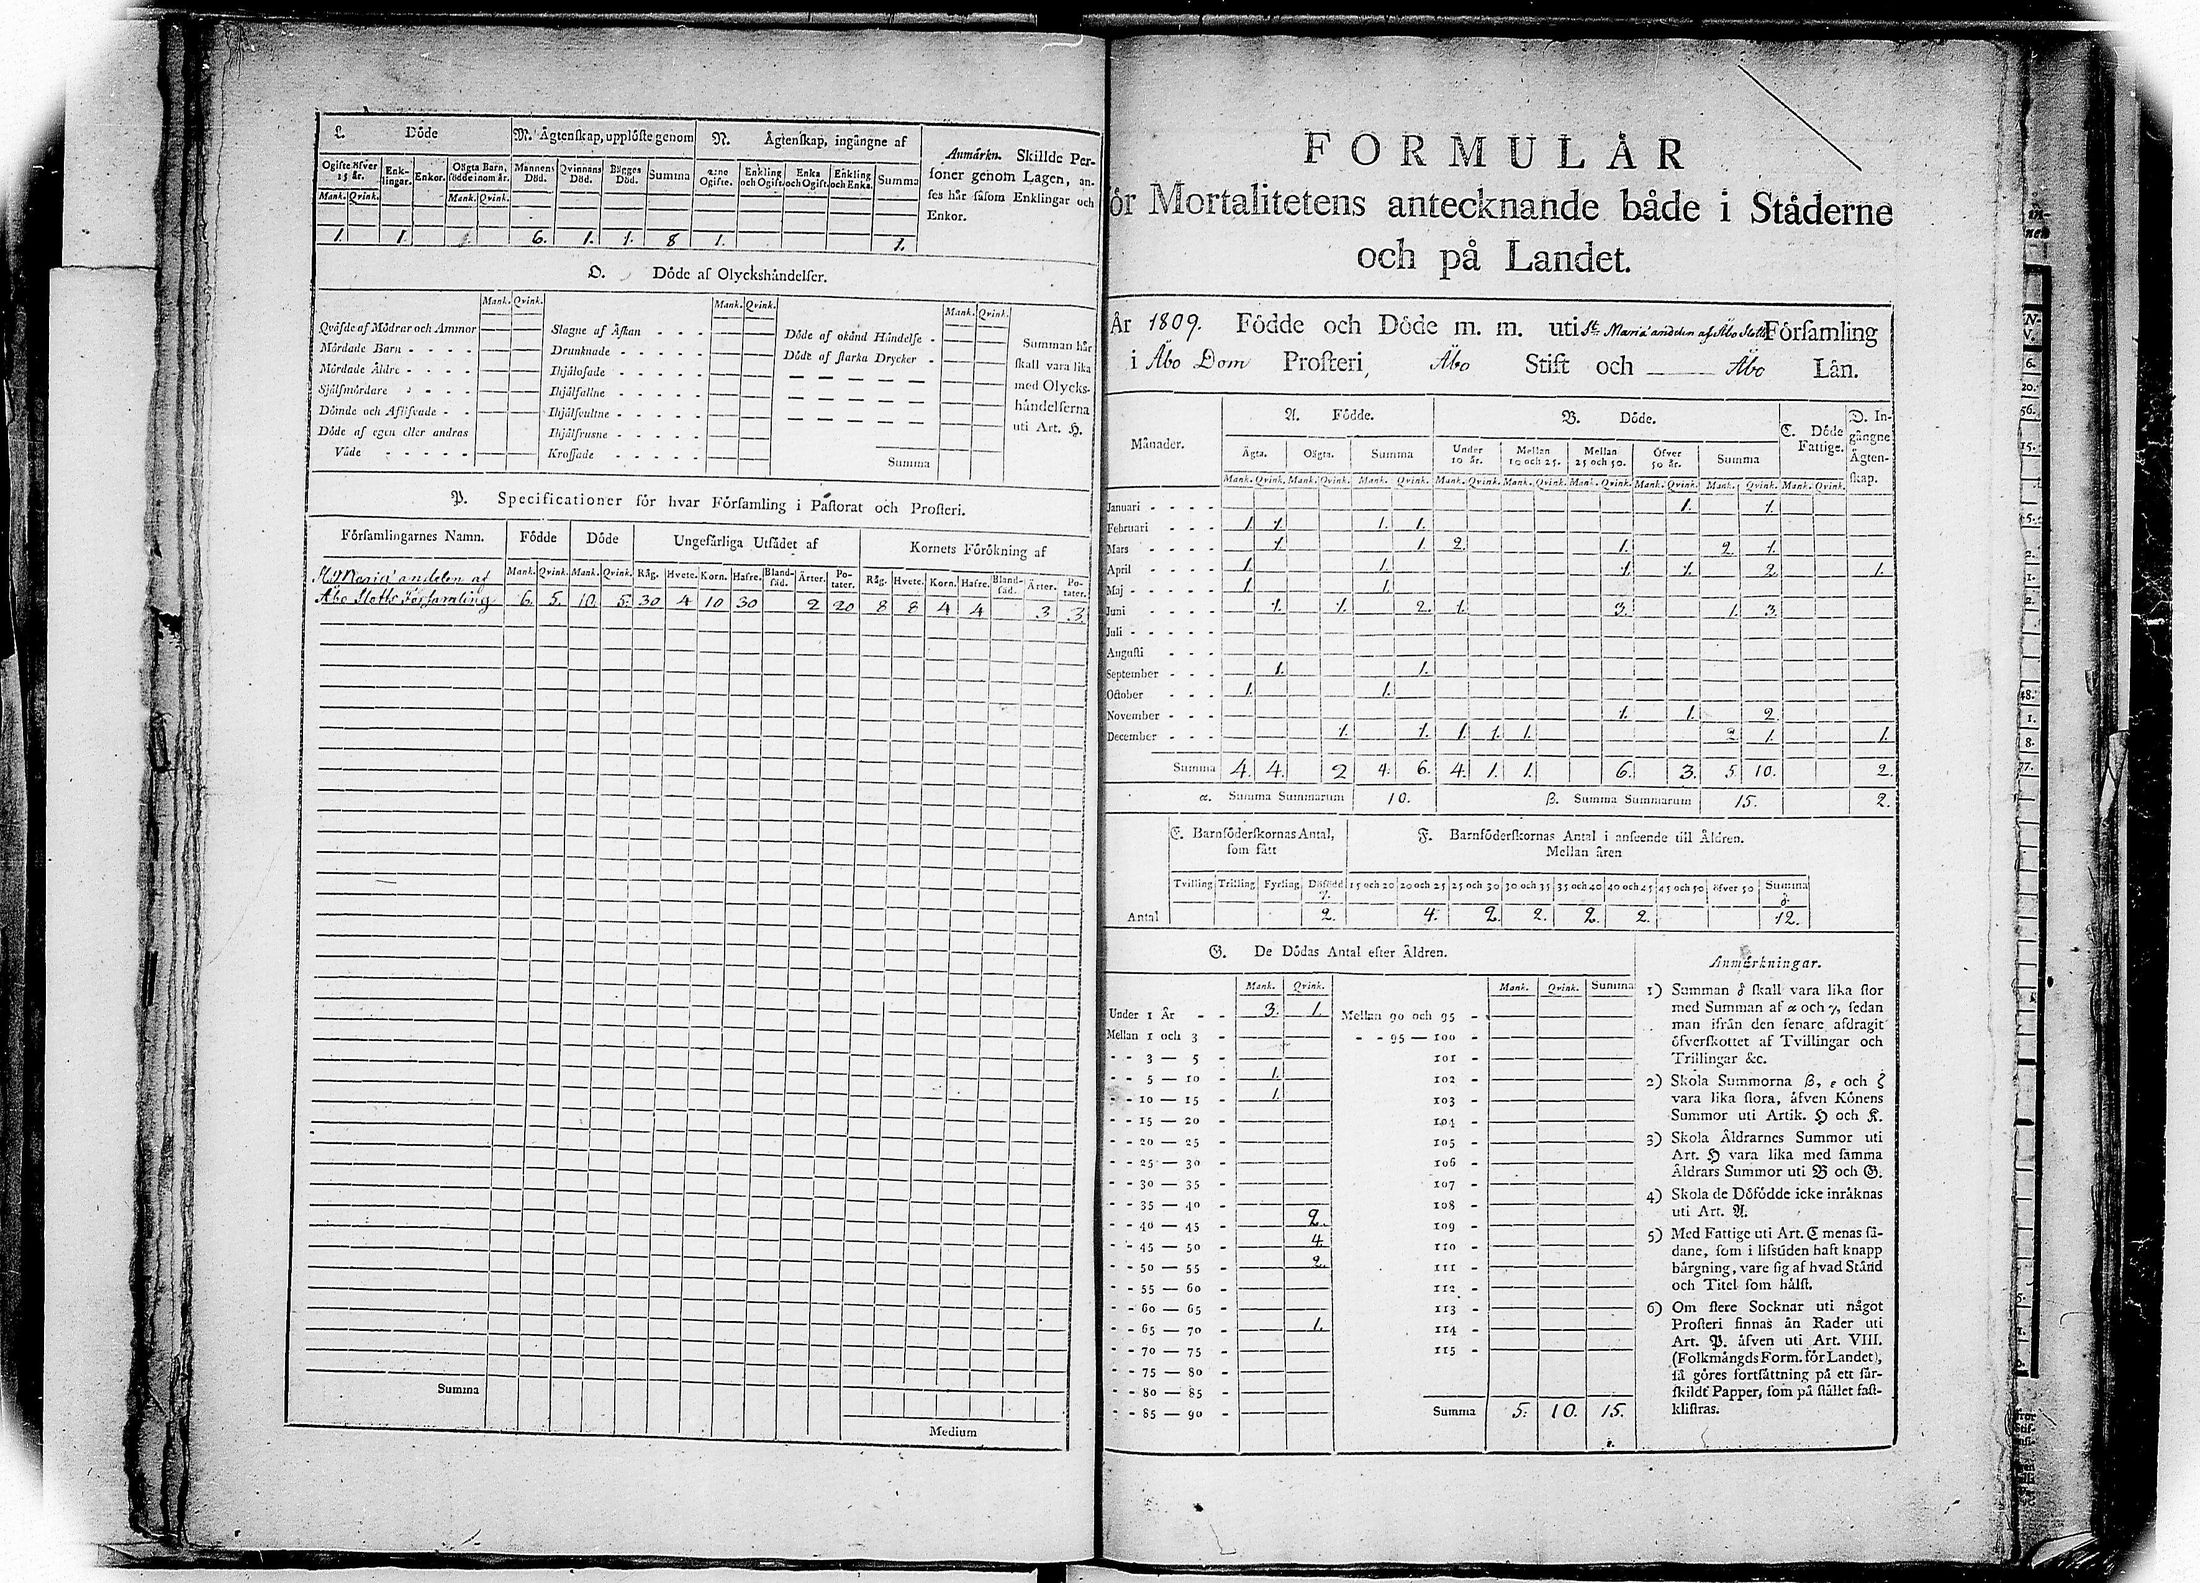 L. Döde
M. Ägtenskap, upplöste genom
N. Ägtenskap, ingångne af
Ogifte öfver 15 år. Enklingar. Enkor. Oägta Barn, födde inom år. Mannens Död. Qvinnans Död. Bägges Död. Summa 2:ne Ogifte. Enkling och Ogift. Enka och Ogift. Enkling och Enka. Summa
Mank. Qvink. Mank. Qvink.
1. 1. 6. 1. 1. 8 1. 1.
Anmärkn. Skillde Personer
soner genom Lagen, an-
ses här såsom Enklingar och
Enkor.
O. Döde af Olyckshändelser.
Mank. Qvink. Mank. Qvink. Mank. Qvink.
Qväfde af Mödrar och Ammor
Mördade Barn - - - -
Mördade Äldre - - - -
Sjelfmördare - - - -
Dömde och Aflifvade - -
Döde af egen eller andras
Våde - - - - -
Slagne af Åskan - - -
Drunknade - - - - -
Ihjälosade - - - - -
Ihjälfallne - - - - -
Ihjälsvultne - - - - -
Ihjälfrusne - - - - -
Krossade - - - - -
Döde af okänd Händelse -
Döde af starka Drycker -
Summa
Summan här
skall vara lika
med Olycks-
händelserna
uti Art. H.
P. Specificationer för hvar Församling i Pastorat och Prosteri.
Församlingarnes Namn. Födde Döde Ungefärliga Utsädet af Kornets Förökning af
Mank. Qvink. Mank. Qvink. Råg. Hvete. Korn. Hafre. Blandsäd. Ärter. Potater. Råg. Hvete. Korn. Hafre. Blandsäd. Ärter. Potater.
St Mariæ andelen af
Åbo Slotts Församling 6. 5. 10. 5. 30 4 10 30 2 20 8 8 4 4 3 3.
Summa
Medium
FORMULÄR
för Mortalitetens antecknande både i Städerne
och på Landet.
År 1809. Födde och Döde m. m. uti St. Mariæ andelen af Åbo Slotts Församling
i Åbo Dom Prosteri, Åbo Stift och Åbo Län.
Månader. A. Födde. B. Döde. C. Döde Fattige. D. Ingångne Ägtenskap.
Ägta. Oägta. Summa Under 10 år. Mellan 10 och 25. Mellan 25 och 50. Öfver 50 år. Summa
Mank. Qvink. Mank. Qvink. Mank. Qvink. Mank. Qvink. Mank. Qvink. Mank. Qvink. Mank. Qvink. Mank. Qvink. Mank. Qvink.
Januari - - - - 1. 1.
Februari - - - 1. 1. 1. 1.
Mars - - - - 1. 1. 2. 1. 2. 1.
April - - - - 1. 1. 1. 1. 2. 1.
Maj - - - - - 1. 1.
Juni - - - - 1. 1. 2. 1. 3. 1. 3.
Juli - - - - -
Augusti - - -
September - - - 1. 1.
October - - - 1. 1.
November - - - 1. 1. 2.
December - - - 1. 1. 1. 1. 1. 2. 1. 1.
Summa 4. 4. 2 4. 6. 4. 1. 1. 6. 3. 5 10. 2.
α. Summa Summarum 10. β. Summa Summarum 15. 2.
E. Barnföderskornas Antal,
som fått
F. Barnföderskornas Antal i anseende till Åldren.
Mellan åren
Tvilling Trilling Fyrling Döfödd 15 och 20 20 och 25 25 och 30 30 och 35 35 och 40 40 och 45 45 och 50 öfver 50 Summa
γ. δ
Antal 2. 4. 2. 2. 2. 2. 12.
G. De Dödas Antal efter Åldren.
Mank. Qvink. Mank. Qvink. Summa
Under 1 År - - 3. 1.
Mellan 1 och 3 -
- - 3 — 5 -
- - 5 — 10 - 1.
- - 10 — 15 - 1.
- - 15 — 20 -
- - 20 — 25 -
- - 25 — 30 -
- - 30 — 35 -
- - 35 — 40 -
- - 40 — 45 - 2.
- - 45 — 50 - 4.
- - 50 — 55 - 2.
- - 55 — 60 -
- - 60 — 65 -
- - 65 — 70 - 1.
- - 70 — 75 -
- - 75 — 80 -
- - 80 — 85 -
- - 85 — 90 -
Mellan 90 och 95 -
- - 95 — 100 -
101 -
102 -
103 -
104 -
105 -
106 -
107 -
108 -
109 -
110 -
111 -
112 -
113 -
114 -
115 -
Summa 5. 10. 15.
Anmärkningar.
1) Summan δ skall vara lika stor
med Summan af α och γ, sedan
man ifrån den senare afdragit
öfverskottet af Tvillingar och
Trillingar &c.
2) Skola Summorna β, ε och ζ
vara lika stora, äfven Könens
Summor uti Artik. H och K.
3) Skola Åldrarnes Summor uti
Art. H vara lika med samma
Åldrars Summor uti B och G.
4) Skola de Döfödde icke inräknas
uti Art. A.
5) Med Fattige uti Art. C menas så-
dane, som i lifstiden haft knapp
bärgning, vare sig af hvad Stånd
och Titel som hälst.
6) Om flere Socknar uti något
Prosteri finnas än Rader uti
Art. P. äfven uti Art. VIII.
(Folkmängds Form. för Landet),
så göres fortsättning på ett sär-
skildt Papper, som på stället fast-
klistras.